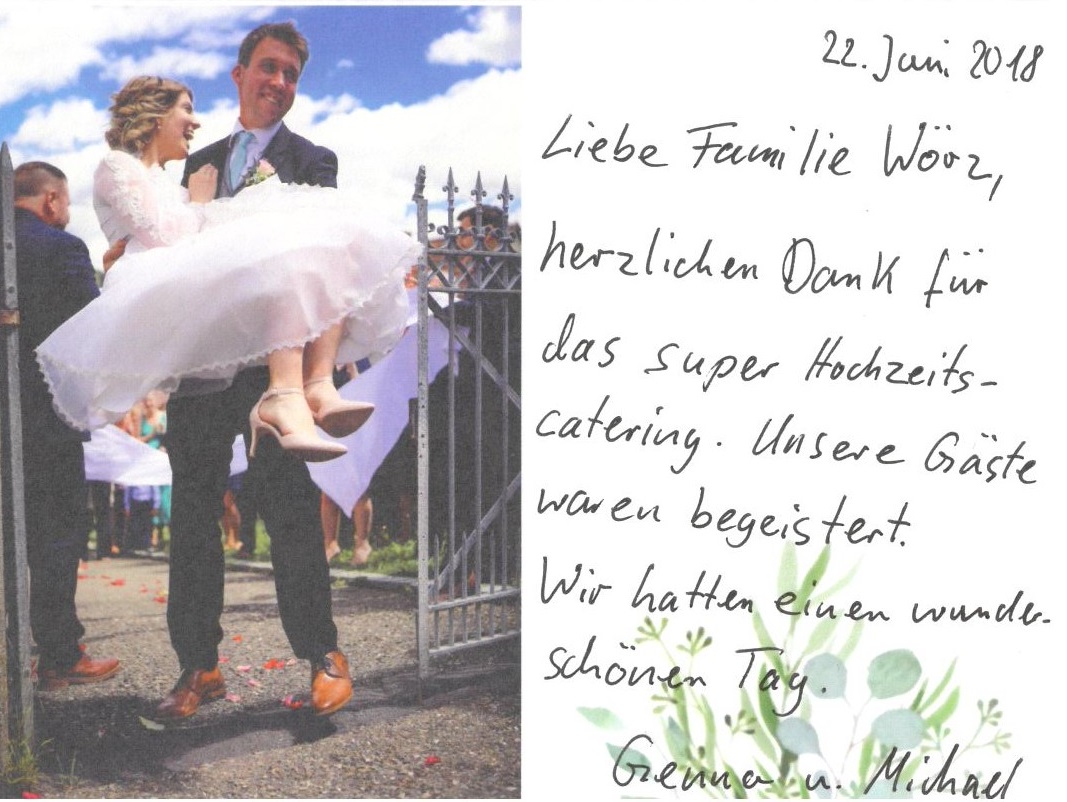 22. Juni 2018
Liebe Familie Wörz,
herzlichen Dank für
das super Hochzeits-
catering. Unsere Gäste
waren begeistert.
Wir hatten einen wunder-
schönen Tag.
Genna u. Michael